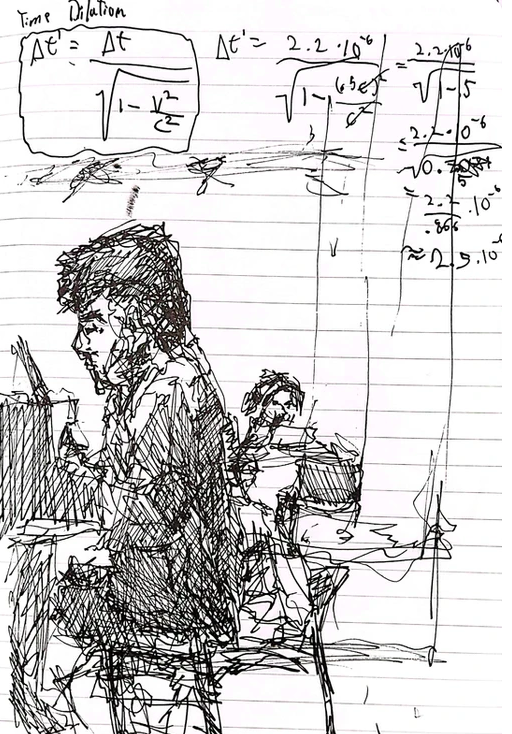 Time Dilation
Δt' = Δt / √(1 - v²/c²)
Δt' = 2.2 · 10⁻⁶ / √(1 - (.5c)²/c²)
= 2.2 · 10⁻⁶ / √(1 - .5
= 2.2 · 10⁻⁶ / √0.
= 2.2 / .866 · 10⁻⁶
≈ 2.5 · 10⁻⁶